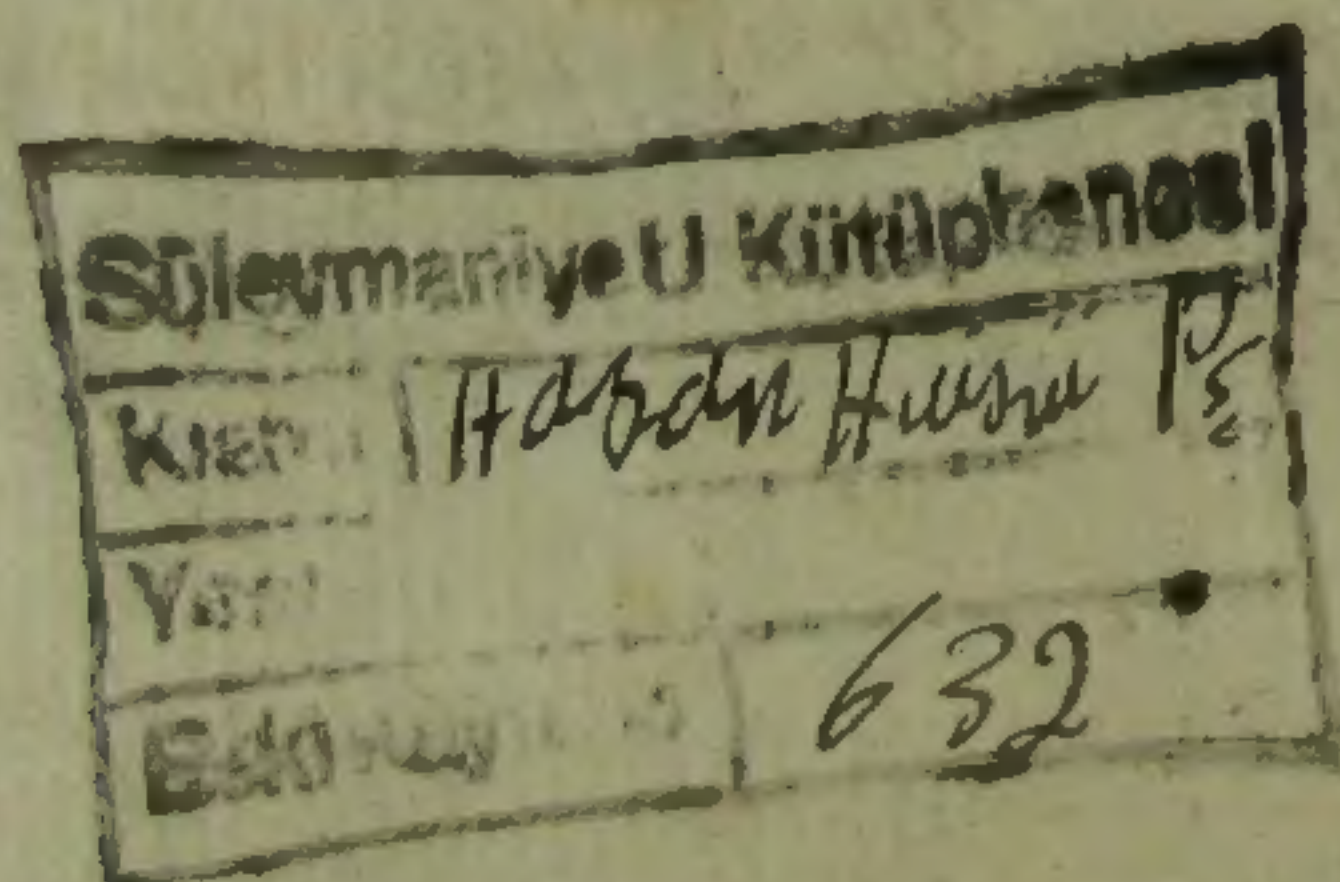 Süleymaniye U Kütüphanesi
Kısmı Hasan Hüsnü Pş
Yeni
632